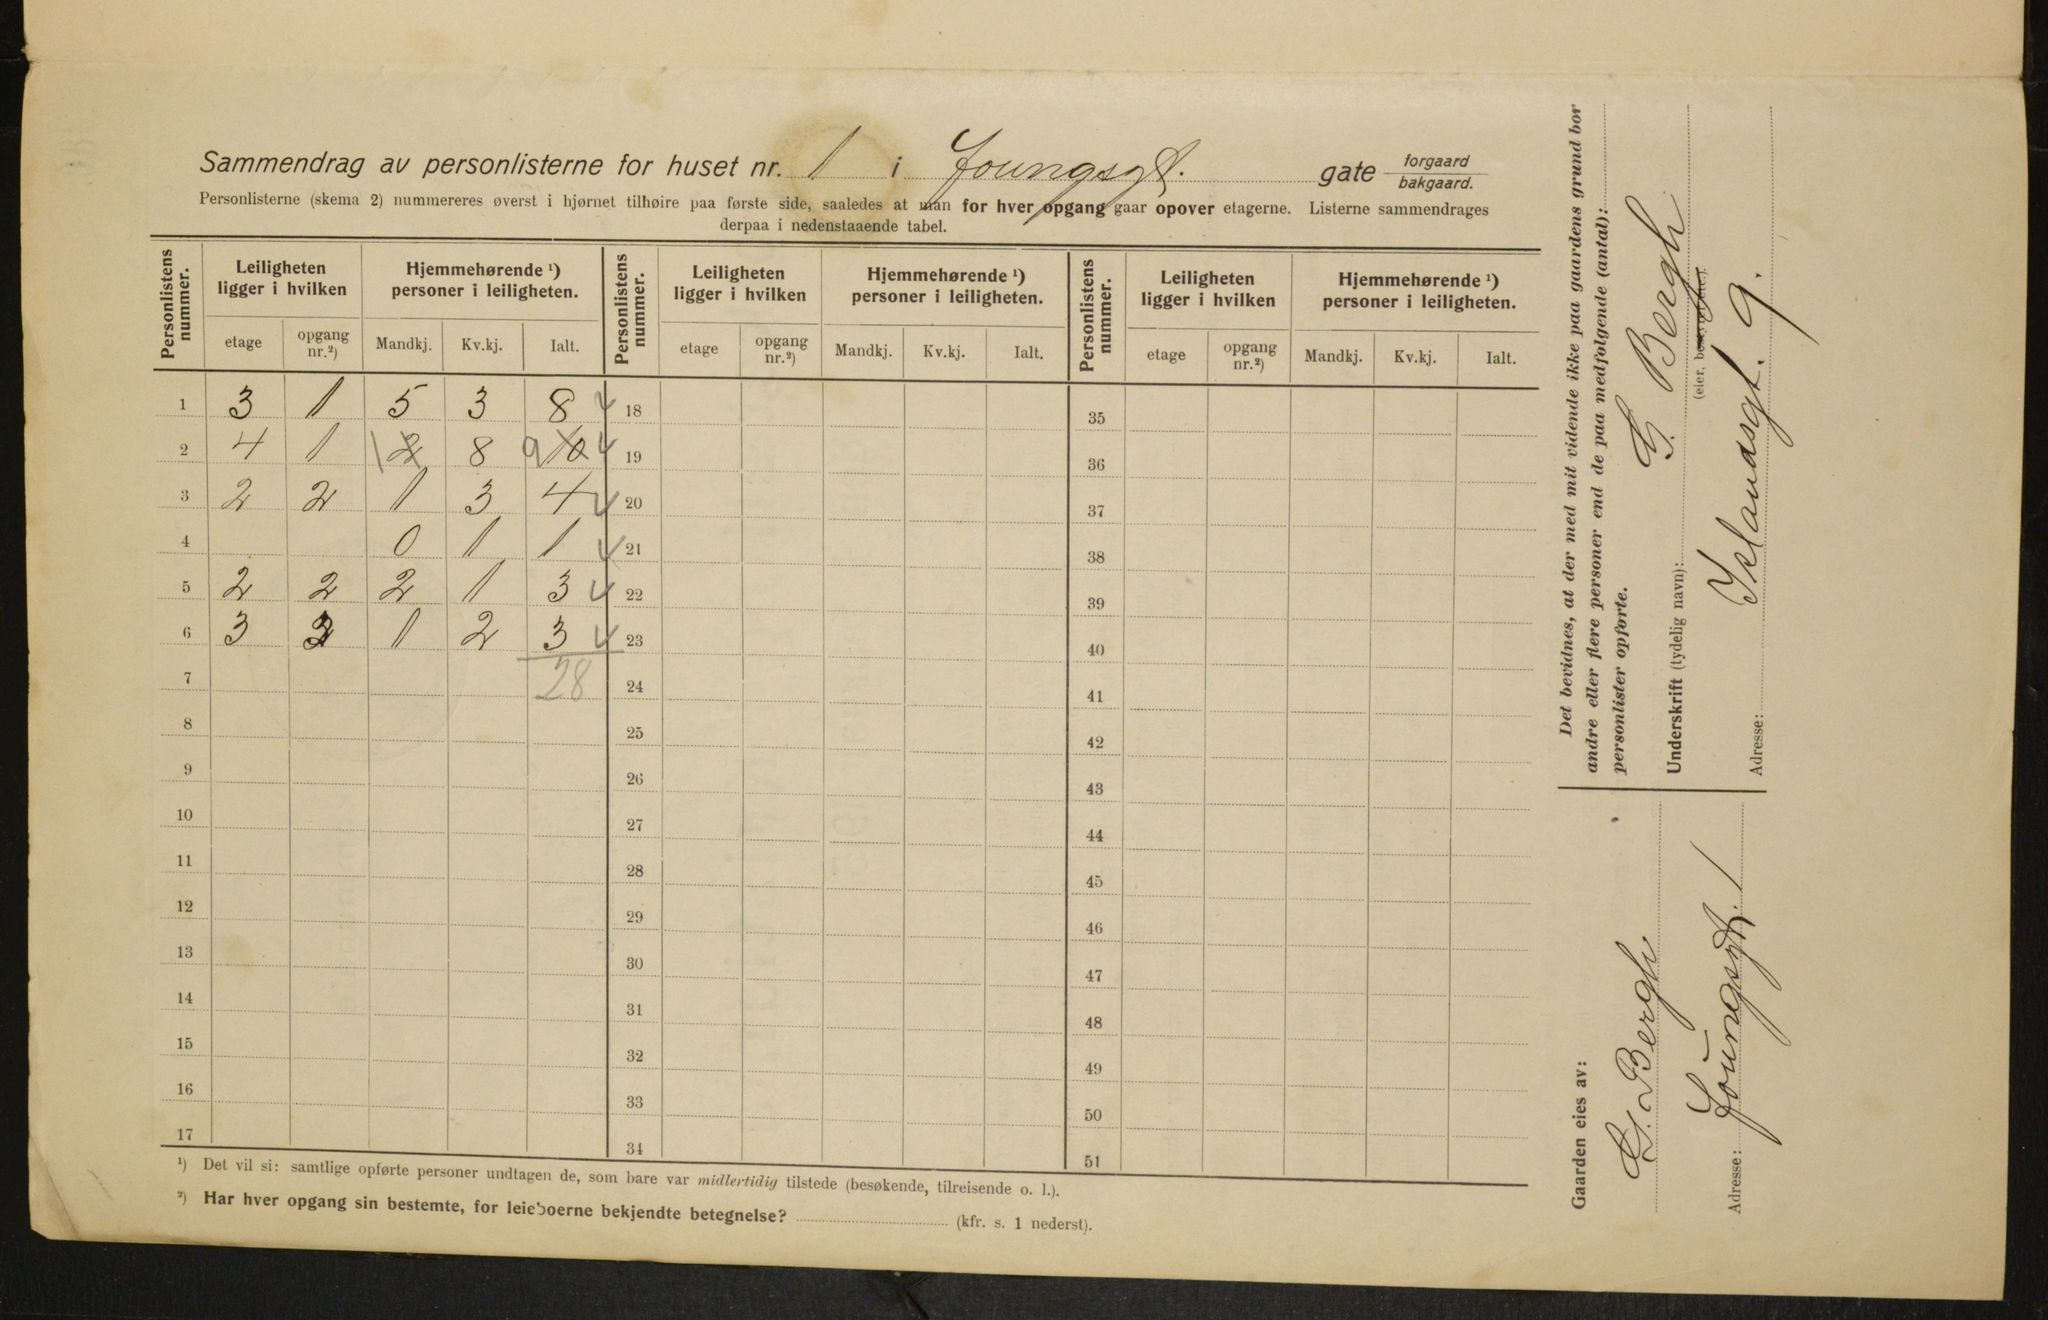 Sammendrag av personlisterne for huset nr. 1 i Youngsgt. gate forgaard / bakgaard.
Personlisterne (skema 2) nummereres øverst i hjørnet tilhøire paa første side, saaledes at man for hver opgang gaar opover etagerne. Listerne sammendrages
derpaa i nedenstaaende tabel.
Personlistens nummer. Leiligheten ligger i hvilken Hjemmehørende ¹) personer i leiligheten. Personlistens nummer. Leiligheten ligger i hvilken Hjemmehørende ¹) personer i leiligheten. Personlistens nummer. Leiligheten ligger i hvilken Hjemmehørende ¹) personer i leiligheten.
etage opgang nr.²) Mandkj. Kv.kj. Ialt. etage opgang nr.²) Mandkj. Kv.kj. Ialt. etage opgang nr.²) Mandkj. Kv.kj. Ialt.
1 3 1 5 3 8 18 35
2 4 1 1 2 8 9 10 19 36
3 2 2 1 3 4 20 37
4 0 1 1 21 38
5 2 2 2 1 3 22 39
6 3 3 1 2 3 23 40
7 28 24 41
8 25 42
9 26 43
10 27 44
11 28 45
12 29 46
13 30 47
14 31 48
15 32 49
16 33 50
17 34 51
¹) Det vil si: samtlige opførte personer undtagen de, som bare var midlertidig tilstede (besøkende, tilreisende o. l.).
²) Har hver opgang sin bestemte, for leieboerne bekjendte betegnelse? (kfr. s. 1 nederst).
Det bevidnes, at der med mit vidende ikke paa gaardens grund bor
andre eller flere personer end de paa medfølgende (antal):
personlister opførte.
Underskrift (tydelig navn): G. Bergh
(eier, bestyrer (eier).
Adresse: 9.
Gaarden eies av:
G. Bergh
Adresse: Youngsgt. 1